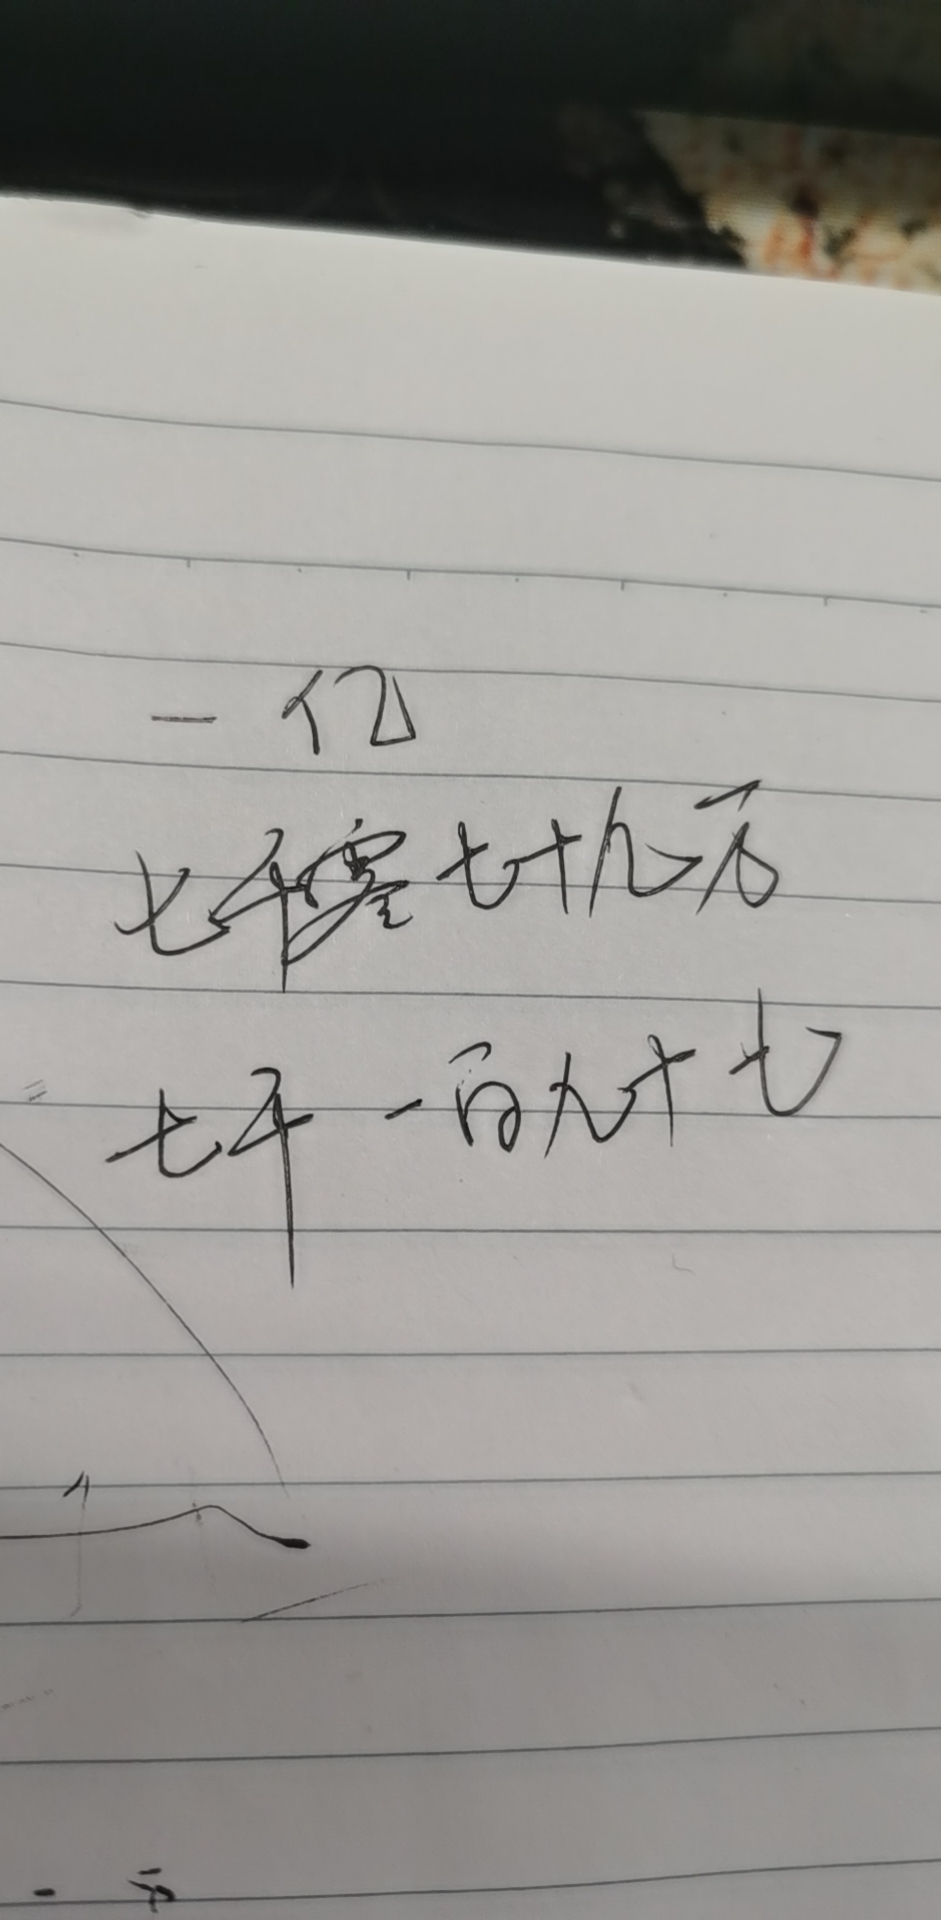 一亿
七千零七十九万
七千一百九十七